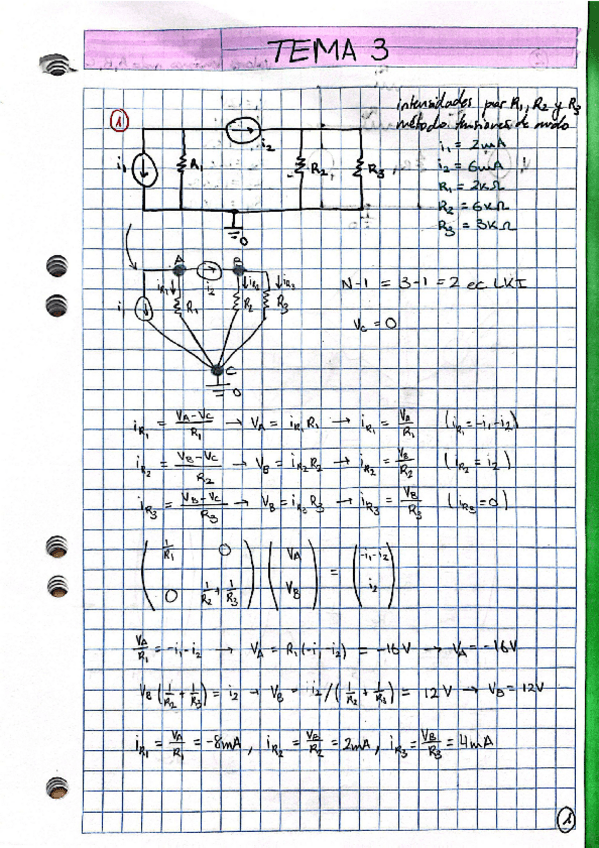 TEMA 3
1
intensidades por R1, R2 y R3
método tensiones de nudo
i1 = 2mA
i2 = 6mA
R1 = 2KΩ
R2 = 6KΩ
R3 = 3KΩ
i2
i1 R1 R2 R3
0
A B
iR1 i2 iR2 iR3
i1 R1 R2 R3
C
0
N-1 = 3-1 = 2 ec LKI
VC = 0
iR1 = (VA-VC)/R1 → VA = iR1 R1 → iR1 = VA/R1 (iR1 = -i1-i2)
iR2 = (VB-VC)/R2 → VB = iR2 R2 → iR2 = VB/R2 (iR2 = i2)
iR3 = (VB-VC)/R3 → VB = iR3 R3 → iR3 = VB/R3 (iR3 = 0)
(1/R1 0) (VA) = (-i1-i2)
(0 1/R2 + 1/R3) (VB) (i2)
VA/R1 = -i1-i2 → VA = R1(-i1-i2) = -16V → VA = -16V
VB(1/R2 + 1/R3) = i2 → VB = i2/(1/R2 + 1/R3) = 12V → VB = 12V
iR1 = VA/R1 = -8mA, iR2 = VB/R2 = 2mA, iR3 = VB/R3 = 4mA
1